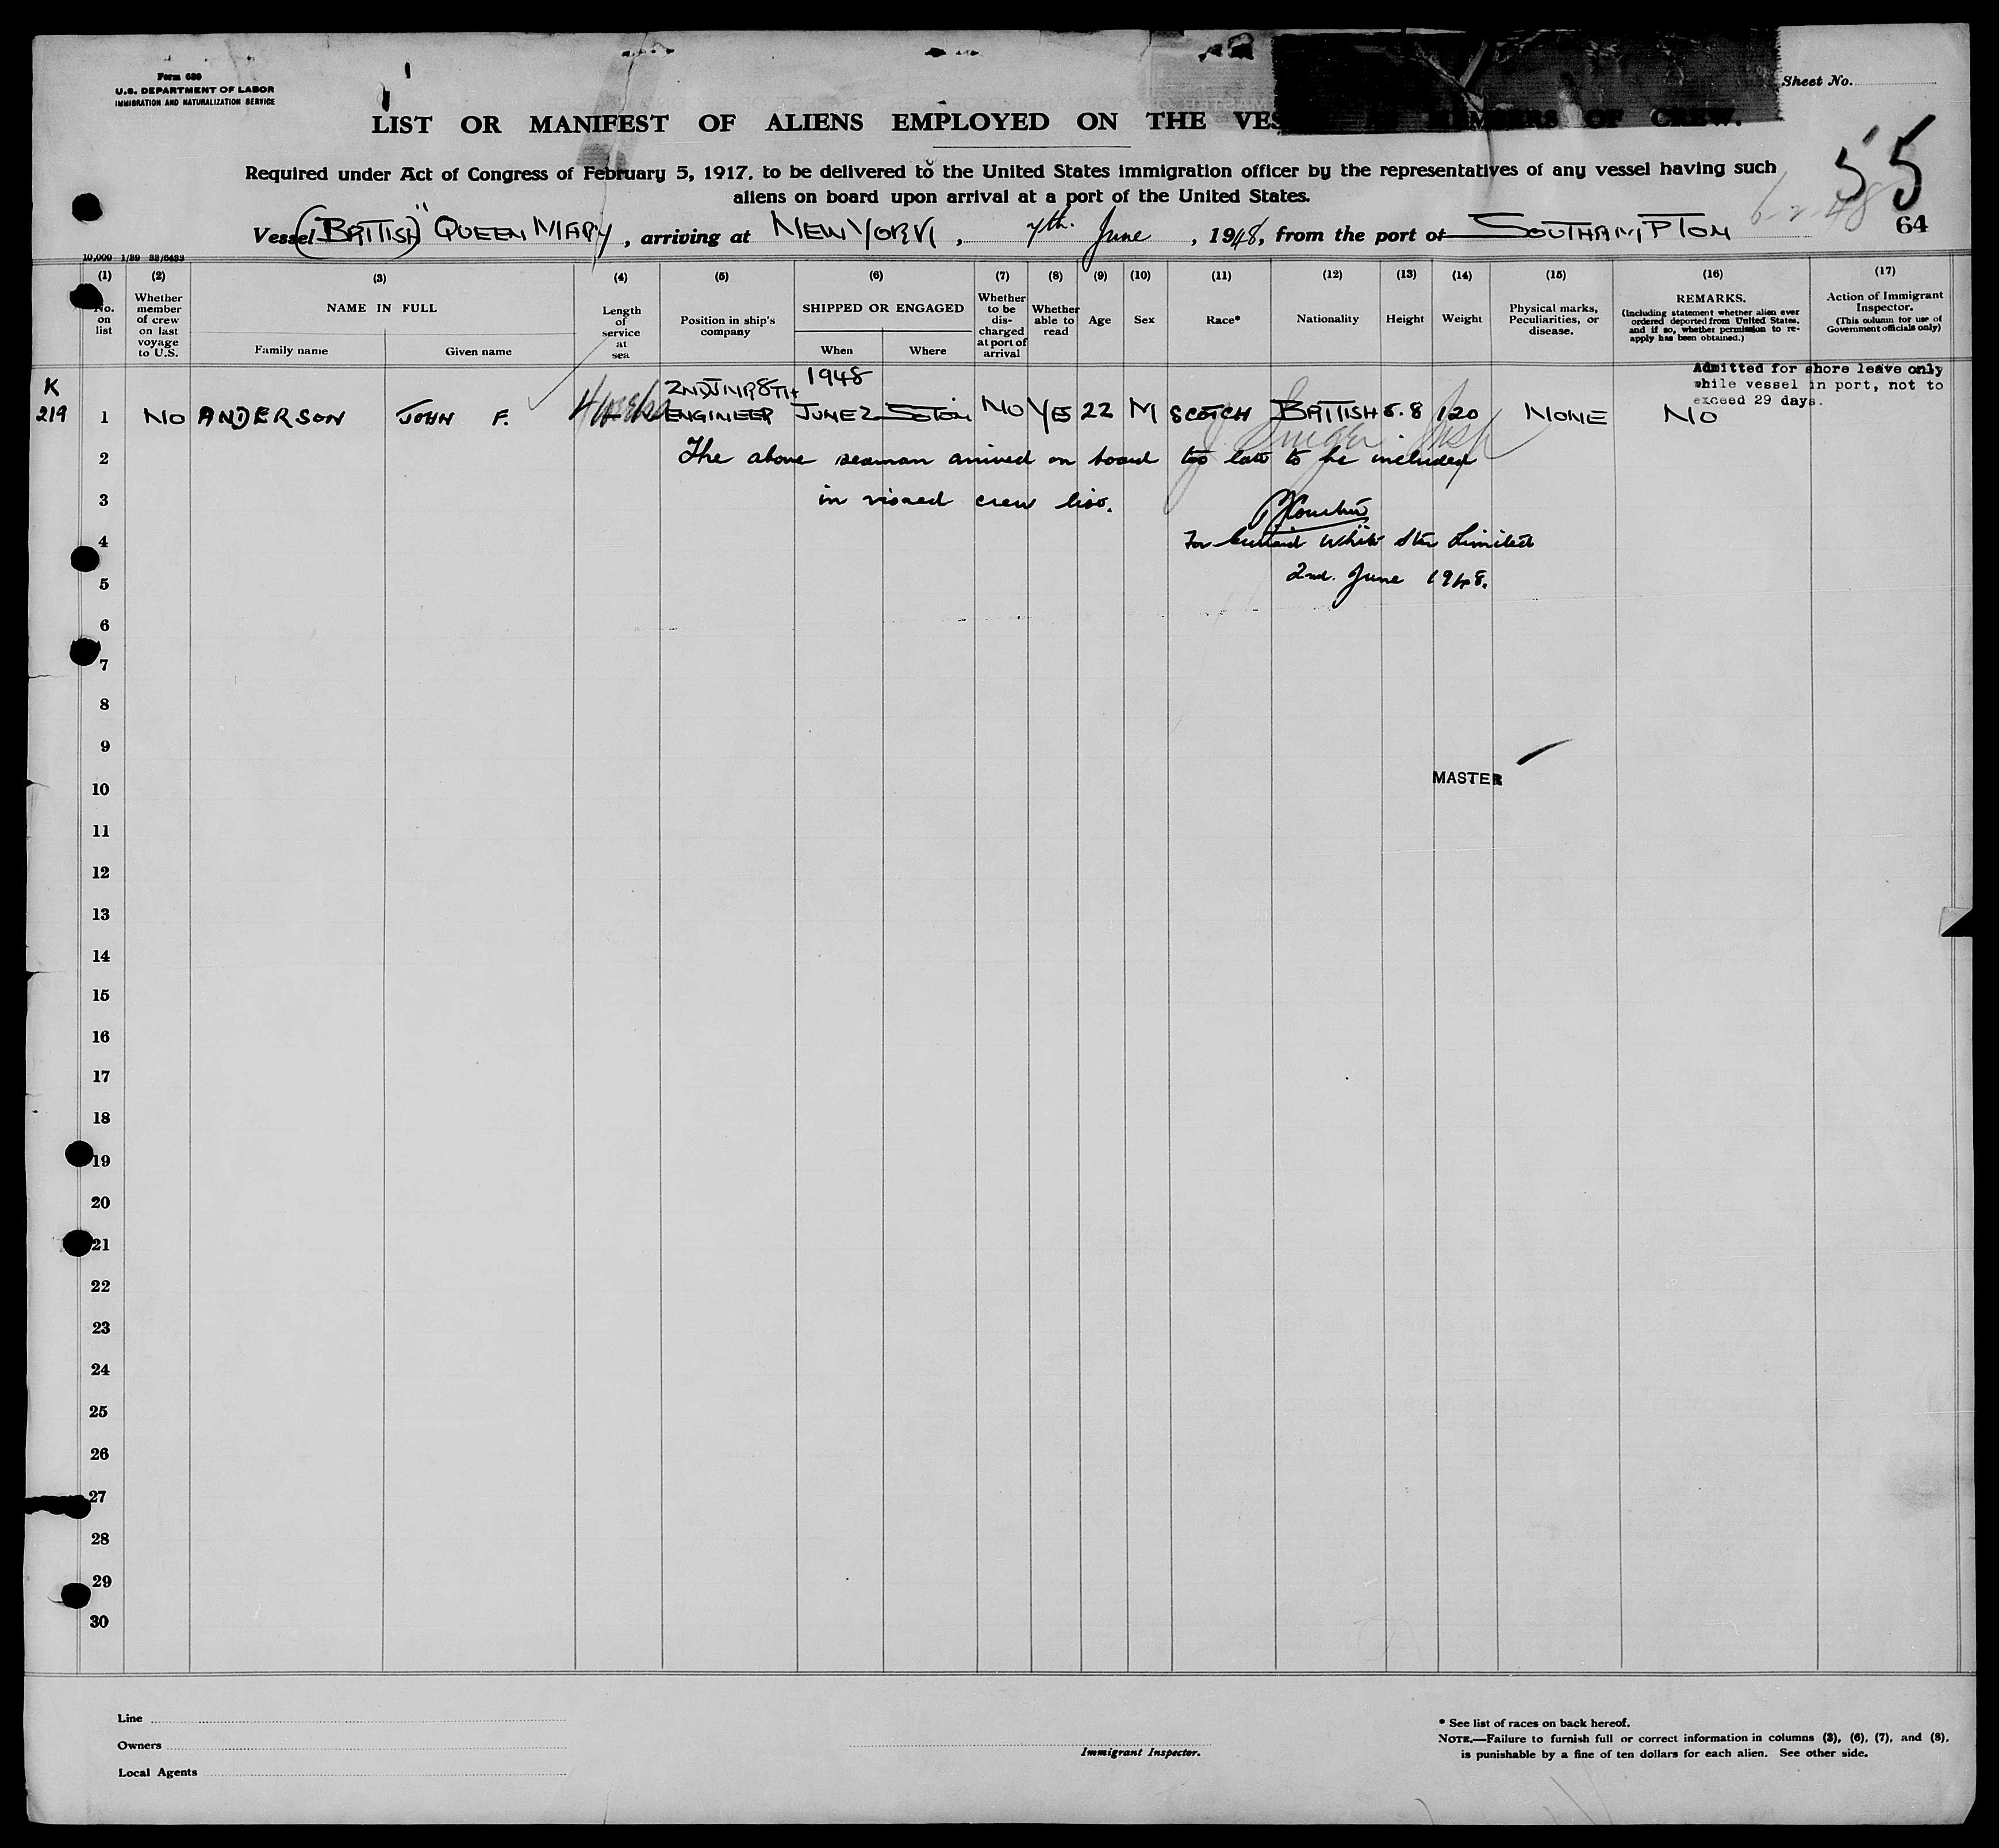 Form 680
U.S. DEPARTMENT OF LABOR
IMMIGRATION AND NATURALIZATION SERVICE
Sheet No.
LIST OR MANIFEST OF ALIENS EMPLOYED ON THE VES MEMBERS OF CREW.
Required under Act of Congress of February 5, 1917, to be delivered to the United States immigration officer by the representatives of any vessel having such
aliens on board upon arrival at a port of the United States.
55
64
Vessel (BRITISH) "QUEEN MARY, arriving at NEW YORK, 7th. June, 1948, from the port of SOUTHAMPTON
10,000 1/39 33/6433
(1) (2) (3) (4) (5) (6) (7) (8) (9) (10) (11) (12) (13) (14) (15) (16) (17)
No. on list
Whether member of crew on last voyage to U.S.
NAME IN FULL
Family name
Given name
Length of service at sea
Position in ship's company
SHIPPED OR ENGAGED
When
Where
Whether to be discharged at port of arrival
Whether able to read
Age
Sex
Race*
Nationality
Height
Weight
Physical marks, Peculiarities, or disease.
REMARKS.
(Including statement whether alien ever ordered deported from United States, and if so, whether permission to re-apply has been obtained.)
Action of Immigrant Inspector.
(This column for use of Government officials only)
Admitted for shore leave only
while vessel in port, not to
exceed 29 days.
K
219
2ND JNR 8TH 1948
1 NO ANDERSON JOHN F. ENGINEER JUNE 2 SOTON NO YES 22 M SCOTCH BRITISH 5.8 120 NONE NO
2 The above seaman arrived on board too late to be included
3 in visaed crew list.
4 For Cunard White Star Limited
5 2nd. June 1948.
6
7
8
9
10 MASTER
11
12
13
14
15
16
17
18
19
20
21
22
23
24
25
26
27
28
29
30
Line
Owners
Local Agents
Immigrant Inspector.
* See list of races on back hereof.
NOTE.—Failure to furnish full or correct information in columns (3), (6), (7), and (8),
is punishable by a fine of ten dollars for each alien. See other side.